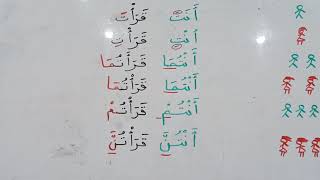 أَنْتَ قَرَأْتَ
أَنْتِ قَرَأْتِ
أَنْتُمَا قَرَأْتُمَا
أَنْتُمَا قَرَأْتُمَا
أَنْتُمْ قَرَأْتُمْ
أَنْتُنَّ قَرَأْتُنَّ